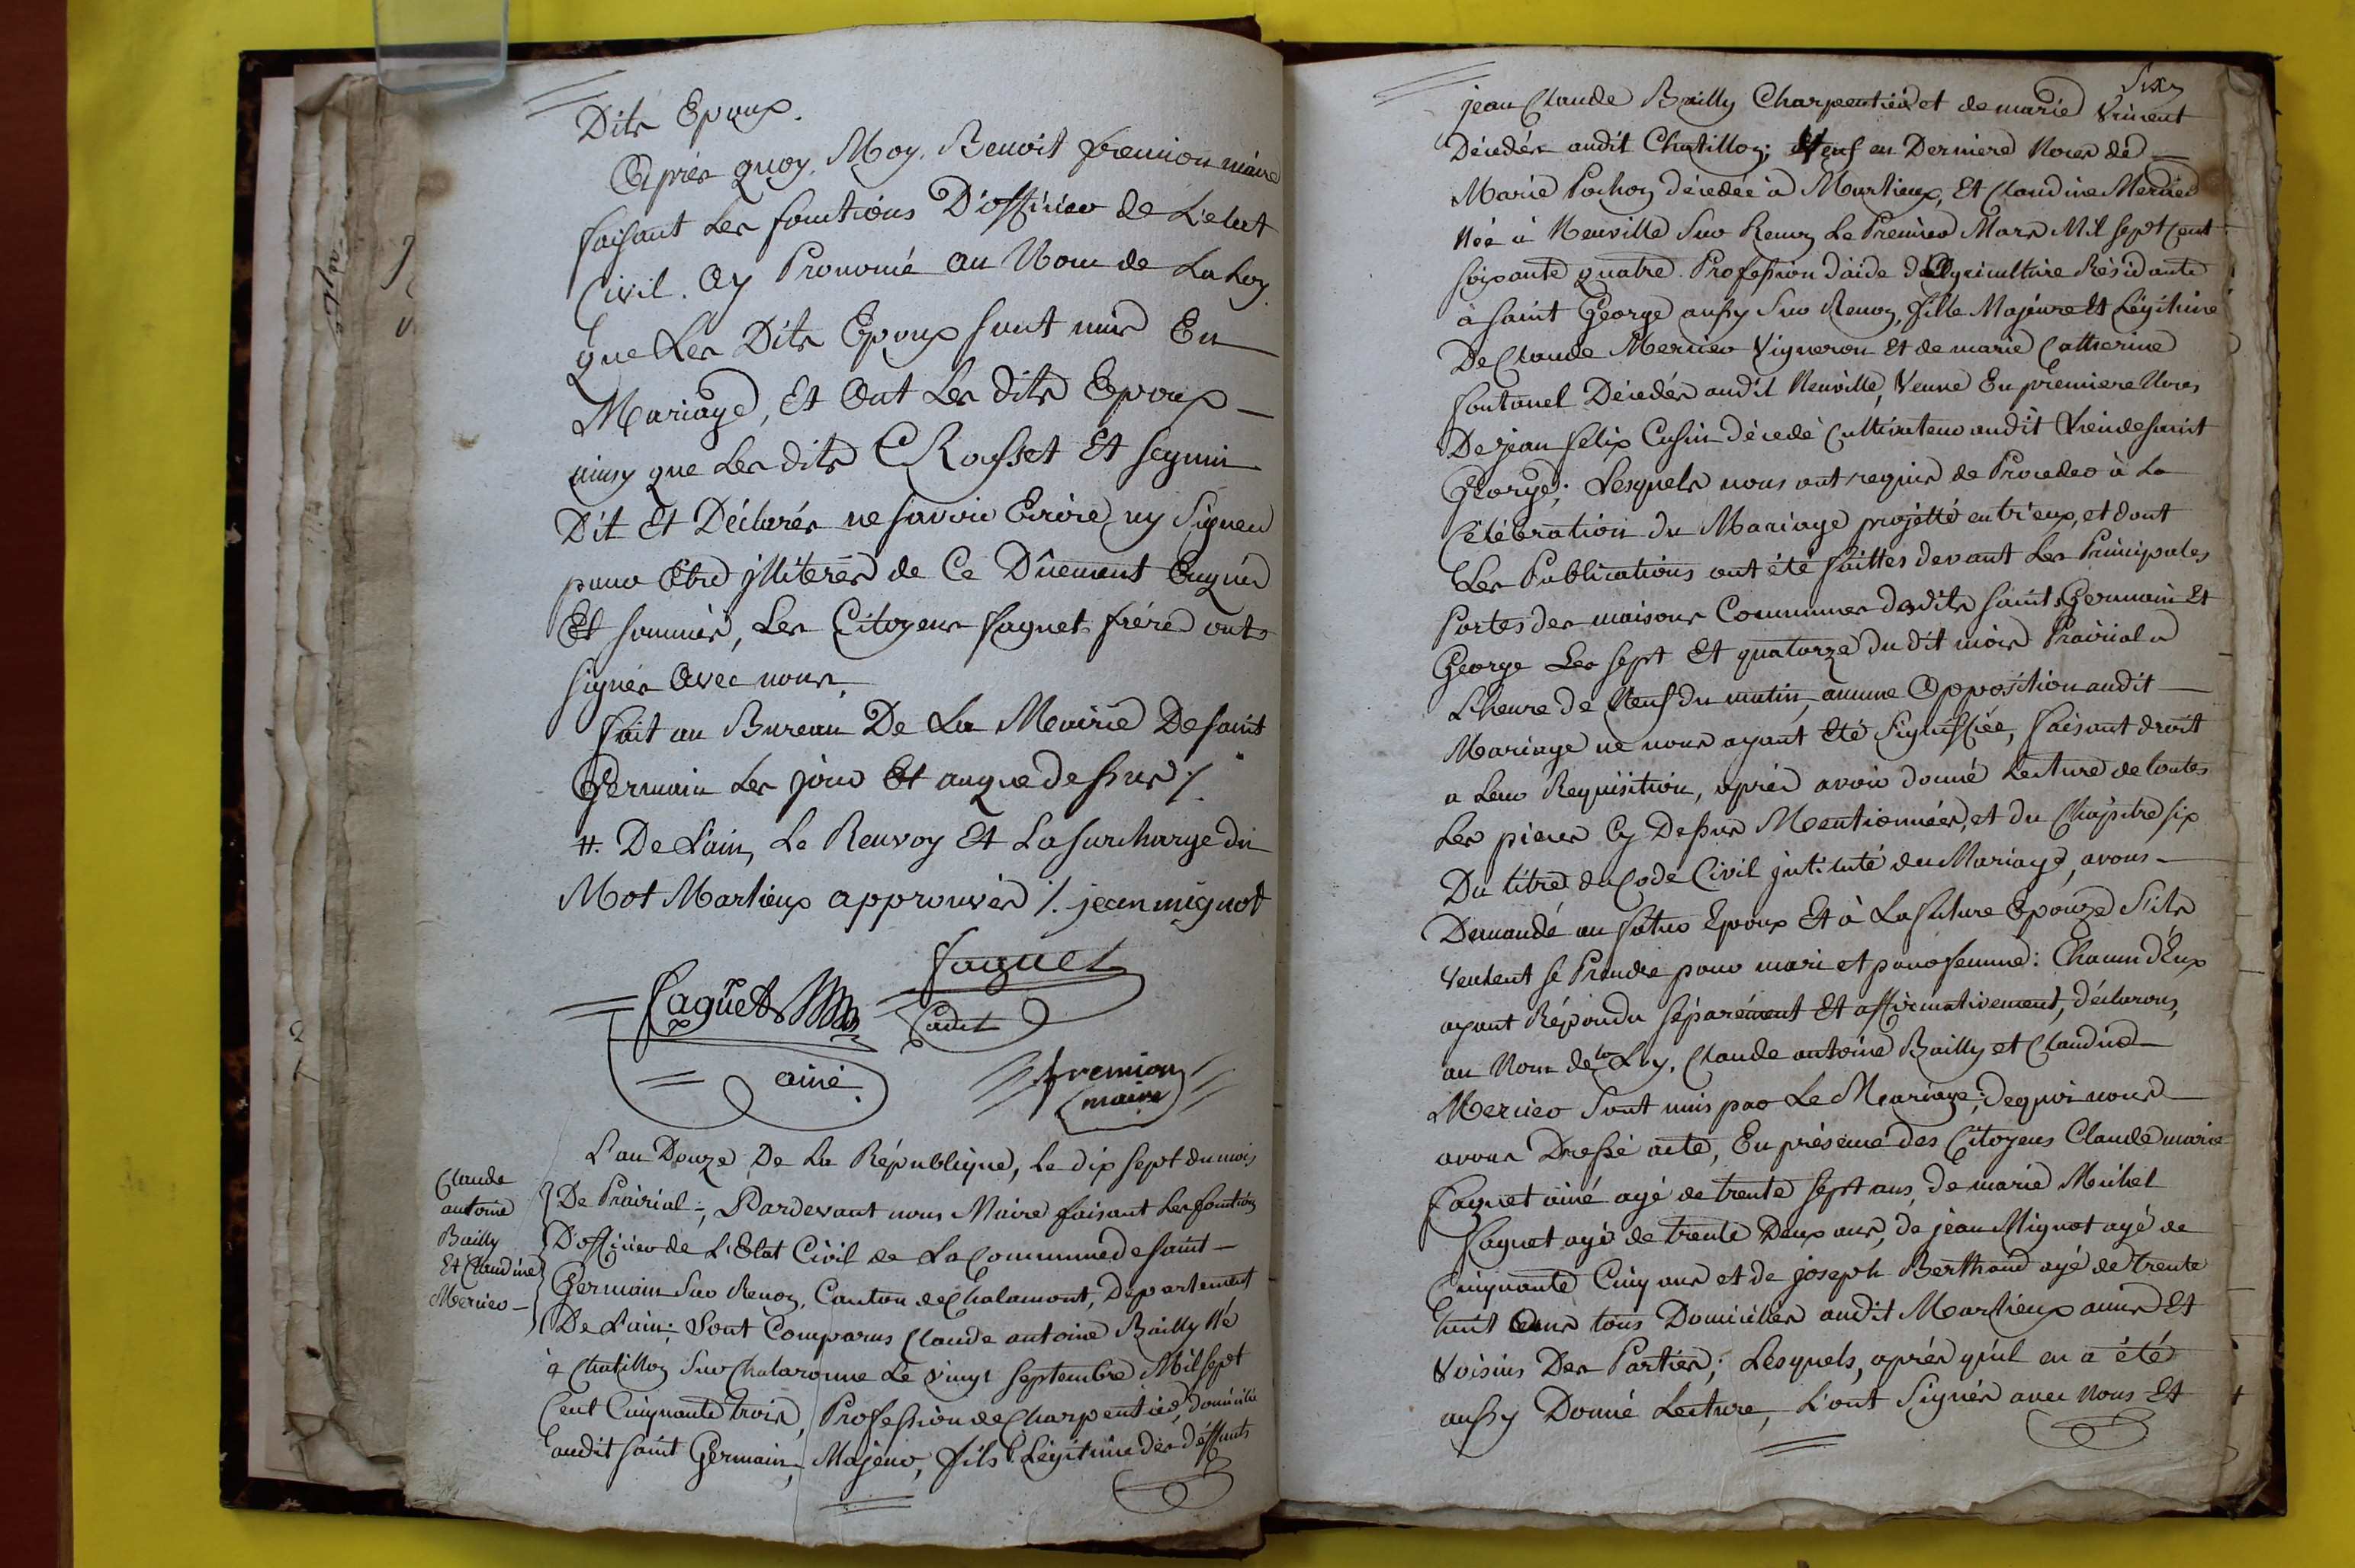 Dits Epoux.
Après quoy, Moy, Benoit fremion maire
faisant Les fonctions D'officier de L'etat
Civil. Ay Prononcé au Nom de La Loy.
que Les Dits Epoux sont unis En
Mariage, Et Ont Les dits Epoux —
ainsy que Les dits CRousset Et seguin
Dit Et Déclarés ne savoir Ecrire, ny Signer
pour Etre jlliterés de Ce Dûement Enquis
Et sommés, Les Citoyens faguet fréres onts
signés Avec nous.
fait au Bureau De La Mairie De saint
Germain Les jour Et an que dessus ./.
#. De L'ain, Le Renvoy Et La surcharge du
Mot Marlieux approuvés ./. jean mignot
faguet
faguet
Cadet
ainé
fremion
maire
L'an Douze De La République, Le dix sept du mois
De Prairial ; Pardevant nous Maire faisant Les fonctions
D'officier de L'Etat Civil de La Commune de saint —
Germain Sur Renon, Canton de Chalamont, Département
De L'ain ; Sont Comparus Claude antoine Bailly Né
à Chatillon Sur Chalaronne Le vingt Septembre Mil Sept
Cent Cinquante trois, Profession de Charpentier, domicilié
audit saint Germain, Majeur, fils Légitime des déffunts
Claude
antoine
Bailly
Et Claudine
Mercier —
Six
jean Claude Bailly Charpentier et de marie Vincent
Décedés audit Chatillon ; Veuf en Derniere Noces de —
Marie Pochon décedée à Marlieux, Et Claudine Mercier
Née à Neuville Sur Renon Le Premier Mars Mil sept Cent
soixante quatre Profession d'aide d'Agriculture Résidante
à saint George aussy Sur Renon, fille Majeure Et Légitime
De Claude Mercier Vigneron Et de marie Catherine
fontanel Décedés audit Neuville, Veuve En premiere Noces
De jean felix Cusin décedé Cultivateur audit Lieu de saint
George ; Lesquels nous ont requis de Proceder à La
Célébration du Mariage projetté entr'eux, et dont
Les Publications ont été faittes devant Les Principales
Portes des maisons Communes desdits saint Germain Et
George Les sept Et quatorze du dit mois Prairial a
L'heure de Neuf du matin, aucune Opposition audit —
Mariage ne nous ayant Eté Signiffiée, faisant droit
a Leur Requisition, après avoir donné Lecture de toutes
Les pieces Cy Dessus Mentionnées, et du Chapitre six
Du titre du Code Civil jntitulé du Mariage, avons —
Demandé au futur Epoux Et à La future Epouze S'ils
Veulent se Prendre pour mari et pour femme : Chacun d'Eux
ayant Répondu séparément Et affirmativement, déclarons,
au Nom de la Loy, Claude antoine Bailly et Claudine
Mercier Sont unis par Le Mariage ; de quoi nous
avons Dressé acte, En présence des Citoyens Claude marie
faguet ainé agé de trente sept ans, de marie Michel
faguet agé de trente Deux ans, de jean Mignot agé de
Cinquante Cinq ans et de joseph Berthaud agé de trente
huit ans tous Domiciliés audit Marlieux amis Et
Voisins Des Parties ; Lesquels, après qu'il en a été
aussy Donné Lecture, L'ont Signés avec Nous Et